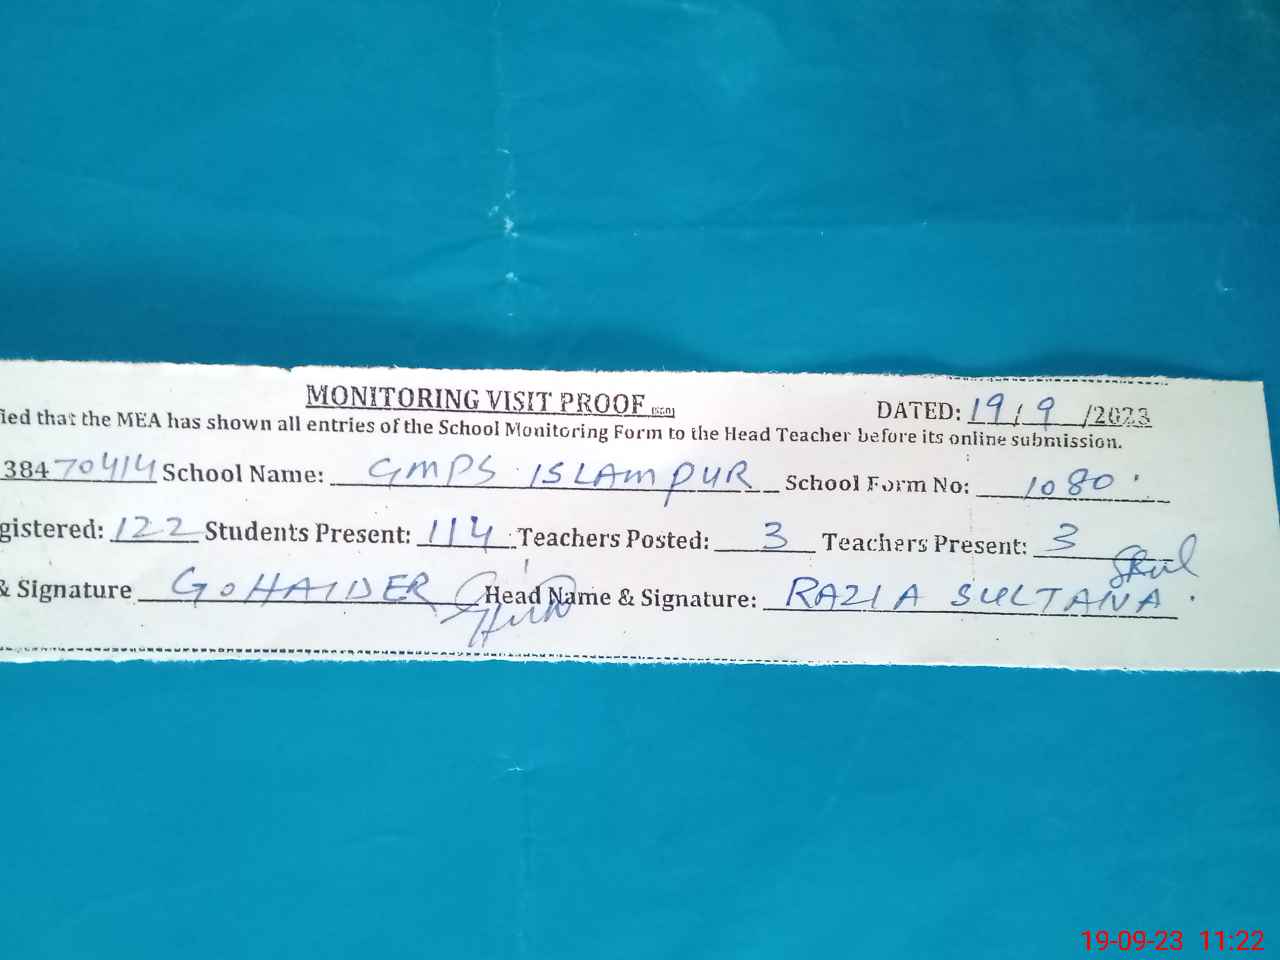 MONITORING VISIT PROOF DATED: 19/9/2023
ied that the MEA has shown all entries of the School Monitoring Form to the Head Teacher before its online submission.
38470414 School Name: GMPS ISLAMPUR School Form No: 1080
gistered: 122 Students Present: 114 Teachers Posted: 3 Teachers Present: 3
& Signature G O HAIDER Head Name & Signature: RAZIA SULTANA
19-09-23 11:22